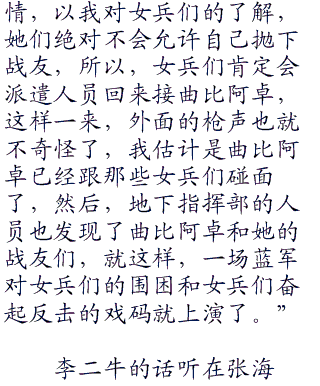 情，以我对女兵们的了解，
她们绝对不会允许自己抛下
战友，所以，女兵们肯定会
派遣人员回来接曲比阿卓，
这样一来，外面的枪声也就
不奇怪了，我估计是曲比阿
卓已经跟那些女兵们碰面
了，然后，地下指挥部的人
员也发现了曲比阿卓和她的
战友们，就这样，一场蓝军
对女兵们的围困和女兵们奋
起反击的戏码就上演了。”
李二牛的话听在张海